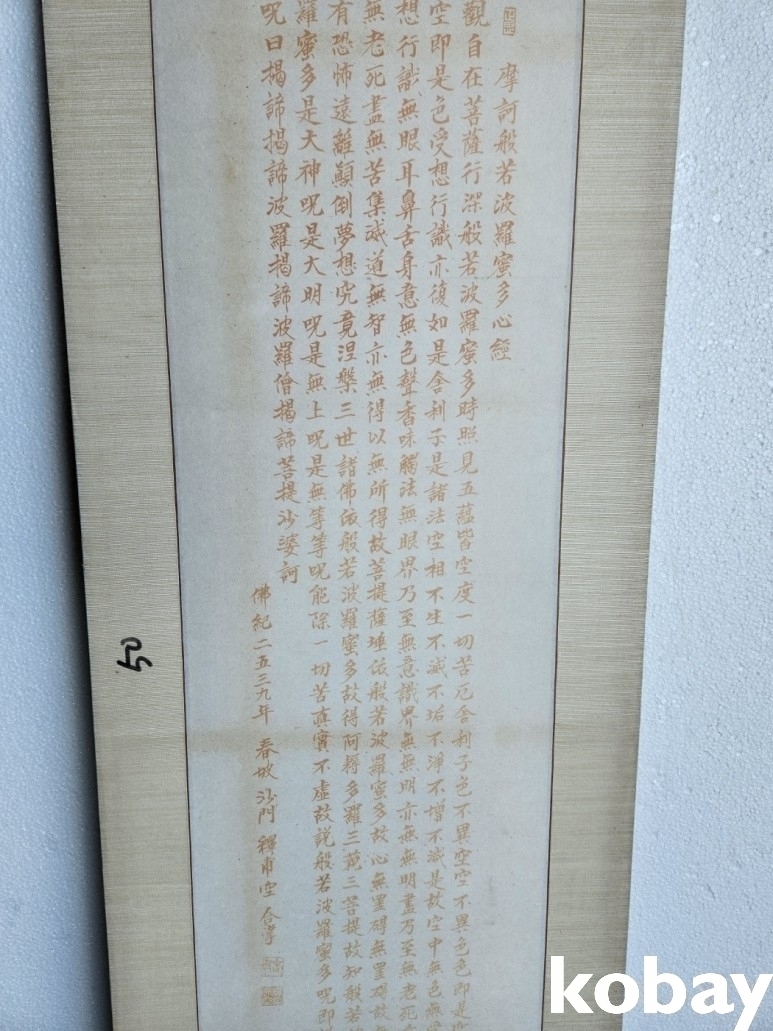 摩訶般若波羅蜜多心經
觀自在菩薩行深般若波羅蜜多時照見五蘊皆空度一切苦厄舍利子色不異空空不異色色即是
空即是色受想行識亦復如是舍利子是諸法空相不生不滅不垢不淨不增不減是故空中無色無
想行識無眼耳鼻舌身意無色聲香味觸法無眼界乃至無意識界無無明亦無無明盡乃至無老死
無老死盡無苦集滅道無智亦無得以無所得故菩提薩埵依般若波羅蜜多故心無罣礙無罣礙故
有恐怖遠離顛倒夢想究竟涅槃三世諸佛依般若波羅蜜多故得阿耨多羅三藐三菩提故知般若
羅蜜多是大神呪是大明呪是無上呪是無等等呪能除一切苦真實不虛故説般若波羅蜜多呪即
呪曰揭諦揭諦波羅揭諦波羅僧揭諦菩提沙婆訶
佛紀二五三九年 春坡 沙門 釋甫空 合掌
50
kobay